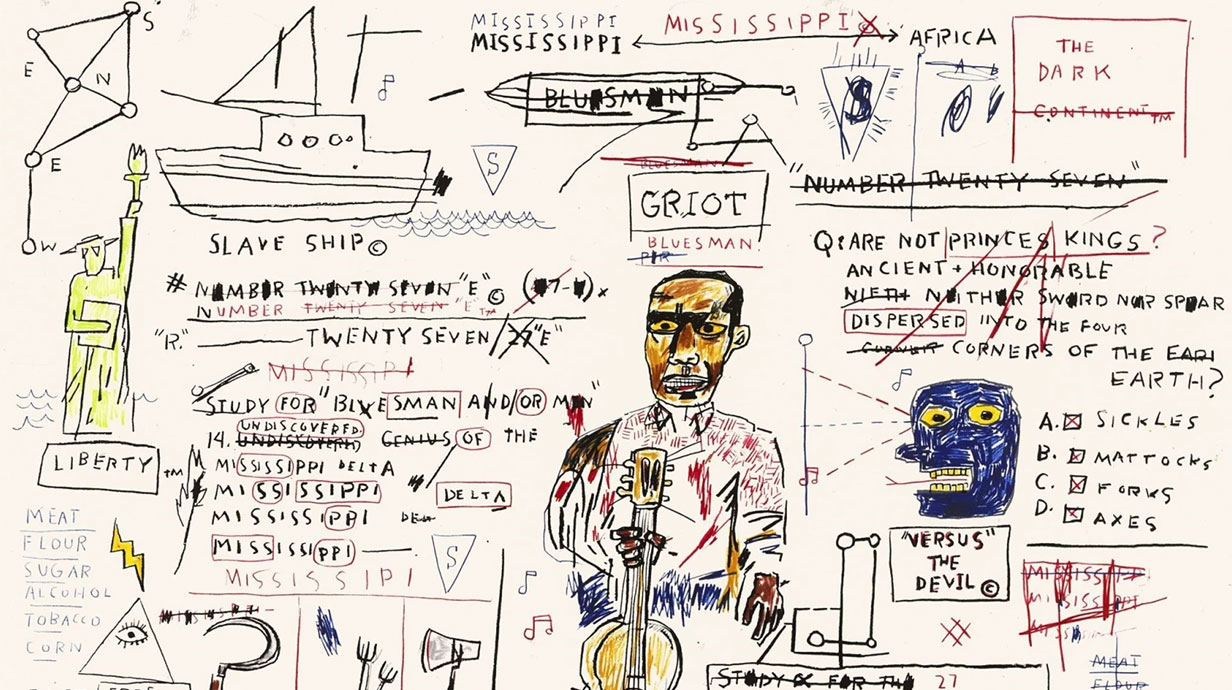 S
E
N
E
W
MISSISSIPPI
MISSISSIPPI
MISSISSIPPI
AFRICA
THE
DARK
CONTINENT™
BLUESMAN
S
S
A B
BLUESMAN
GRIOT
BLUESMAN
"NUMBER TWENTY SEVEN"
SLAVE SHIP©
# NUMBER TWENTY SEVEN "E"©
NUMBER TWENTY SEVEN "E™
"R." TWENTY SEVEN/27"E"
MISSISSIPI
STUDY FOR "BLUESMAN AND/OR MAN"
UNDISCOVERED
14. UNDISCOVERED GENIUS OF THE
MISSISSIPPI DELTA
MISSISSIPPI DELTA
MISSISSIPPI
MISSISSIPPI
MISSISSIPI
S
LIBERTY™
MEAT
FLOUR
SUGAR
ALCOHOL
TOBACCO
CORN
Q: ARE NOT PRINCES KINGS?
ANCIENT + HONORABLE
NEITHER SWORD NOR SPEAR
DISPERSED INTO THE FOUR
CORNERS OF THE EARI
EARTH?
A. SICKLES
B. MATTOCKS
C. FORKS
D. AXES
"VERSUS"
THE
DEVIL©
MISSISSIPPI
MISSISSIPPI
MEAT
FLOUR
STUDY FOR THE
27